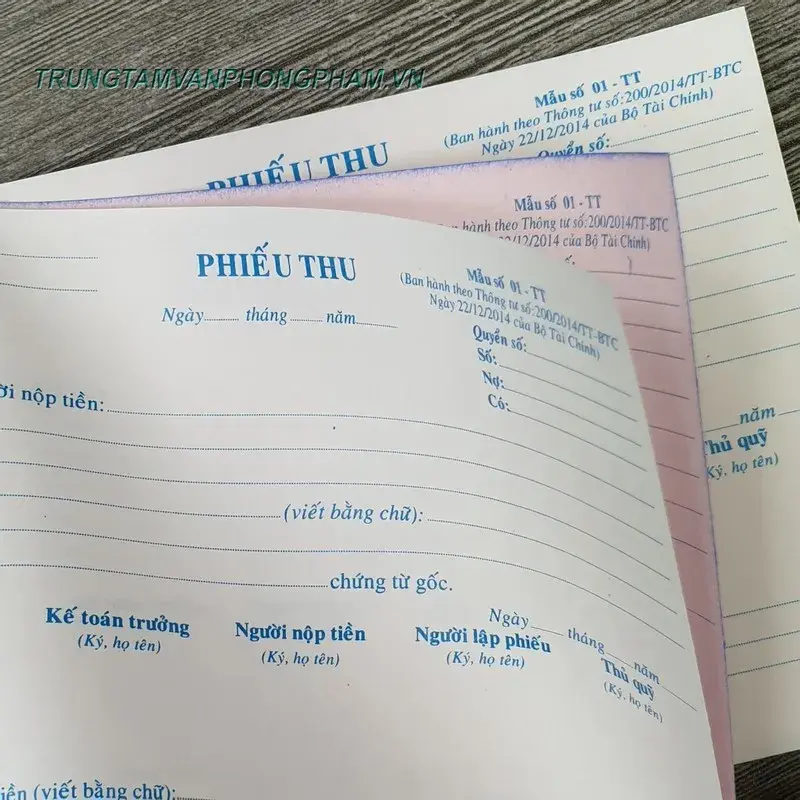 TRUNGTAMVANPHONGPHAM.VN
Mẫu số 01 - TT
(Ban hành theo Thông tư số:200/2014/TT-BTC
Ngày 22/12/2014 của Bộ Tài Chính)
Quyển số:
PHIẾU THU
năm
Thủ quỹ
(Ký, họ tên)
Mẫu số 01 - TT
hành theo Thông tư số:200/2014/TT-BTC
/12/2014 của Bộ Tài Chính)
PHIẾU THU
Ngày tháng năm
Mẫu số 01 - TT
(Ban hành theo Thông tư số:200/2014/TT-BTC
Ngày 22/12/2014 của Bộ Tài Chính)
Quyển số:
Số:
Nợ:
Có:
nộp tiền:
(viết bằng chữ):
chứng từ gốc.
Ngày tháng năm
Kế toán trưởng
(Ký, họ tên)
Người nộp tiền
(Ký, họ tên)
Người lập phiếu
(Ký, họ tên)
Thủ quỹ
(Ký, họ tên)
(viết bằng chữ):